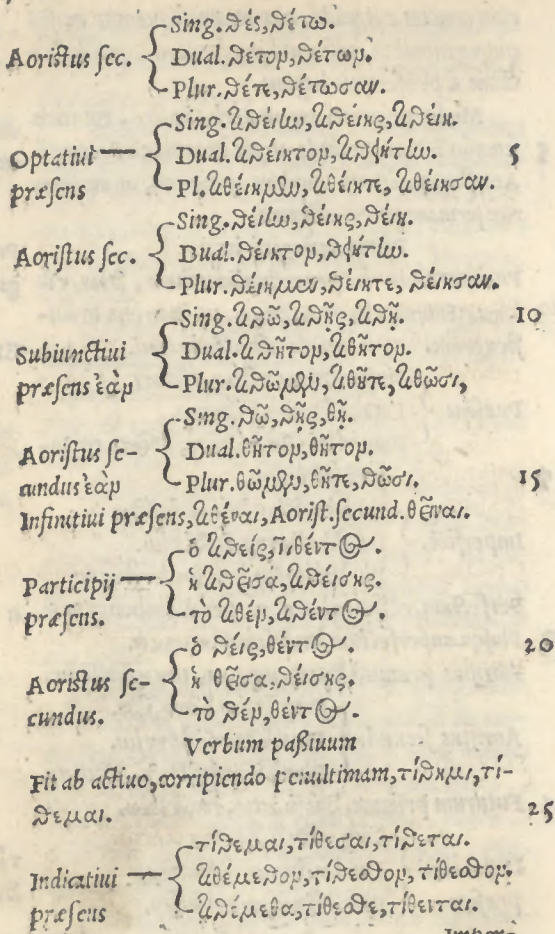 Aoristus sec. Sing. θές, θέτω.
Dual. θέτον, θέτων.
Plur. θέτε, θέτωσαν.
Optatiui præsens Sing. τιθείην, τιθείης, τιθείη.
Dual. τιθείητον, τιθειήτην. 5
Pl. τιθείημεν, τιθείητε, τιθείησαν.
Aoristus sec. Sing. θείην, θείης, θείη.
Dual. θείητον, θειήτην.
Plur. θείημεν, θείητε, θείησαν.
Subiunctiui præsens ἐὰν Sing. τιθῶ, τιθῇς, τιθῇ. 10
Dual. τιθῆτον, τιθῆτον.
Plur. τιθῶμεν, τιθῆτε, τιθῶσι,
Aoristus secundus ἐὰν Sing. θῶ, θῇς, θῇ.
Dual. θῆτον, θῆτον.
Plur. θῶμεν, θῆτε, θῶσι. 15
Infinitiui præsens, τιθέναι, Aorist. secund. θεῖναι.
Participij præsens. ὁ τιθείς, τιθέντος.
ἡ τιθεῖσα, τιθείσης.
τὸ τιθέν, τιθέντος.
Aoristus secundus. ὁ θείς, θέντος. 20
ἡ θεῖσα, θείσης.
τὸ θέν, θέντος.
Verbum paßiuum
Fit ab actiuo, corripiendo penultimam, τίθημι, τί-
θεμαι. 25
Indicatiui præsens τίθεμαι, τίθεσαι, τίθεται.
τιθέμεθον, τίθεσθον, τίθεσθον.
τιθέμεθα, τίθεσθε, τίθενται.